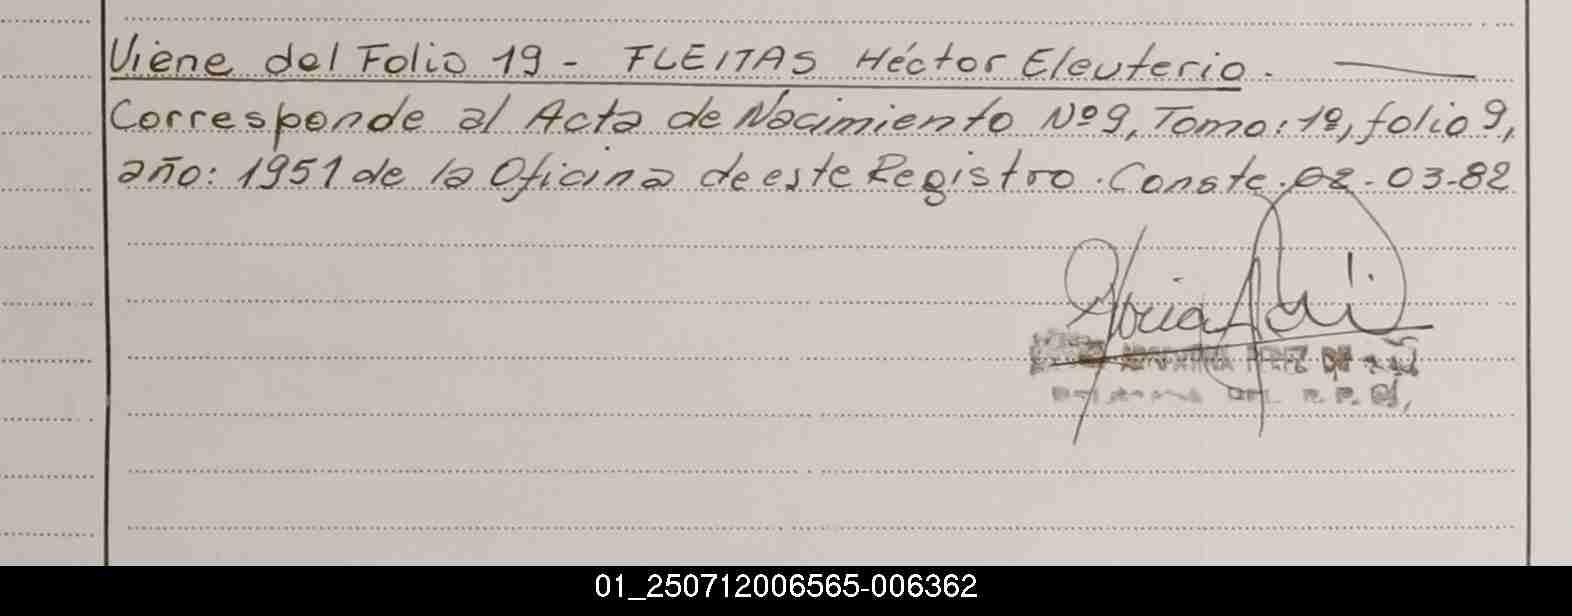 Viene del Folio 19 - FLEITAS Héctor Eleuterio. —
Corresponde al Acta de Nacimiento Nº 9, Tomo: 1º, folio 9,
año: 1951 de la Oficina de este Registro. Conste. 02-03-82
PEREZ DE
DEL R. P.
01_250712006565-006362